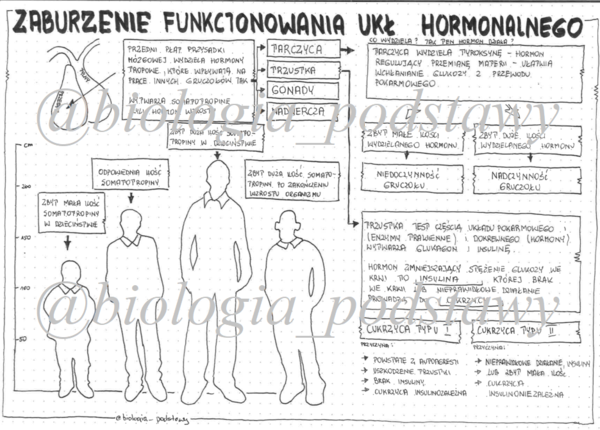 ZABURZENIE FUNKCJONOWANIA UKŁ HORMONALNEGO
PRZEDNI PŁAT PRZYSADKI
MÓZGOWEJ WYDZIELA HORMONY
TROPOWE, KTÓRE WPŁYWAJĄ NA
PRACE INNYCH GRUCZOŁÓW TAK
WYTWARZA SOMATOTROPINE
HORMON WZROSTU
TARCZYCA
TRZUSTKA
GONADY
NADNERCZA
CO WYDZIELA? JAK TEN HORMON DZIAŁA?
TARCZYCA WYDZIELA TYROKSYNĘ - HORMON
REGULUJĄCY PRZEMIANĘ MATERII - UŁATWIA
WCHŁANIANIE GLUKOZY Z PRZEWODU
POKARMOWEGO
ZBYT MAŁE ILOŚCI
WYDZIELANEGO HORMONU
ZBYT DUŻE ILOŚCI
WYDZIELANEGO HORMONY
NIEDOCZYNNOŚĆ
GRUCZOŁU
NADCZYNNOŚĆ
GRUCZOŁU
ZBYT DUŻA ILOŚĆ SOMATO-
TROPINY W DZIECIŃSTWIE
ODPOWIEDNIA ILOŚĆ
SOMATOTROPINY
ZBYT MAŁA ILOŚĆ
SOMATOTROPINY
W DZIECIŃSTWIE
ZBYT DUŻA ILOŚĆ SOMATO-
TROPINY PO ZAKOŃCZENIU
WZROSTU ORGANIZMU
cm
200
150
100
50
TRZUSTKA JEST CZĘŚCIĄ UKŁADU POKARMOWEGO I
(ENZYMY TRAWIENNE) I DOKREWNEGO (HORMONY)
WYTWARZA GLUKAGON I INSULINĘ.
HORMON ZMNIEJSZAJĄCY STĘŻENIE GLUKOZY WE
KRWI TO INSULINA KTÓREJ BRAK
WE KRWI LUB NIEPRAWIDŁOWE DZIAŁANIE
PROWADZĄ DO CUKRZYCY
CUKRZYCA TYPU I
CUKRZYCA TYPU II
PRZYCZYNA:
→ POWSTAJE Z AUTOAGRESJI
→ USZKODZENIE TRZUSTKI
→ BRAK INSULINY
→ CUKRZYCA INSULINOZALEŻNA
PRZYCZYNA:
→ NIEPRAWIDŁOWE DZIAŁANIE INSULINY
→ LUB ZBYT MAŁA ILOŚĆ
→ CUKRZYCA
INSULINONIEZALEŻNA
@biologia_podstawy
@biologia_podstawy
@biologia_podstawy